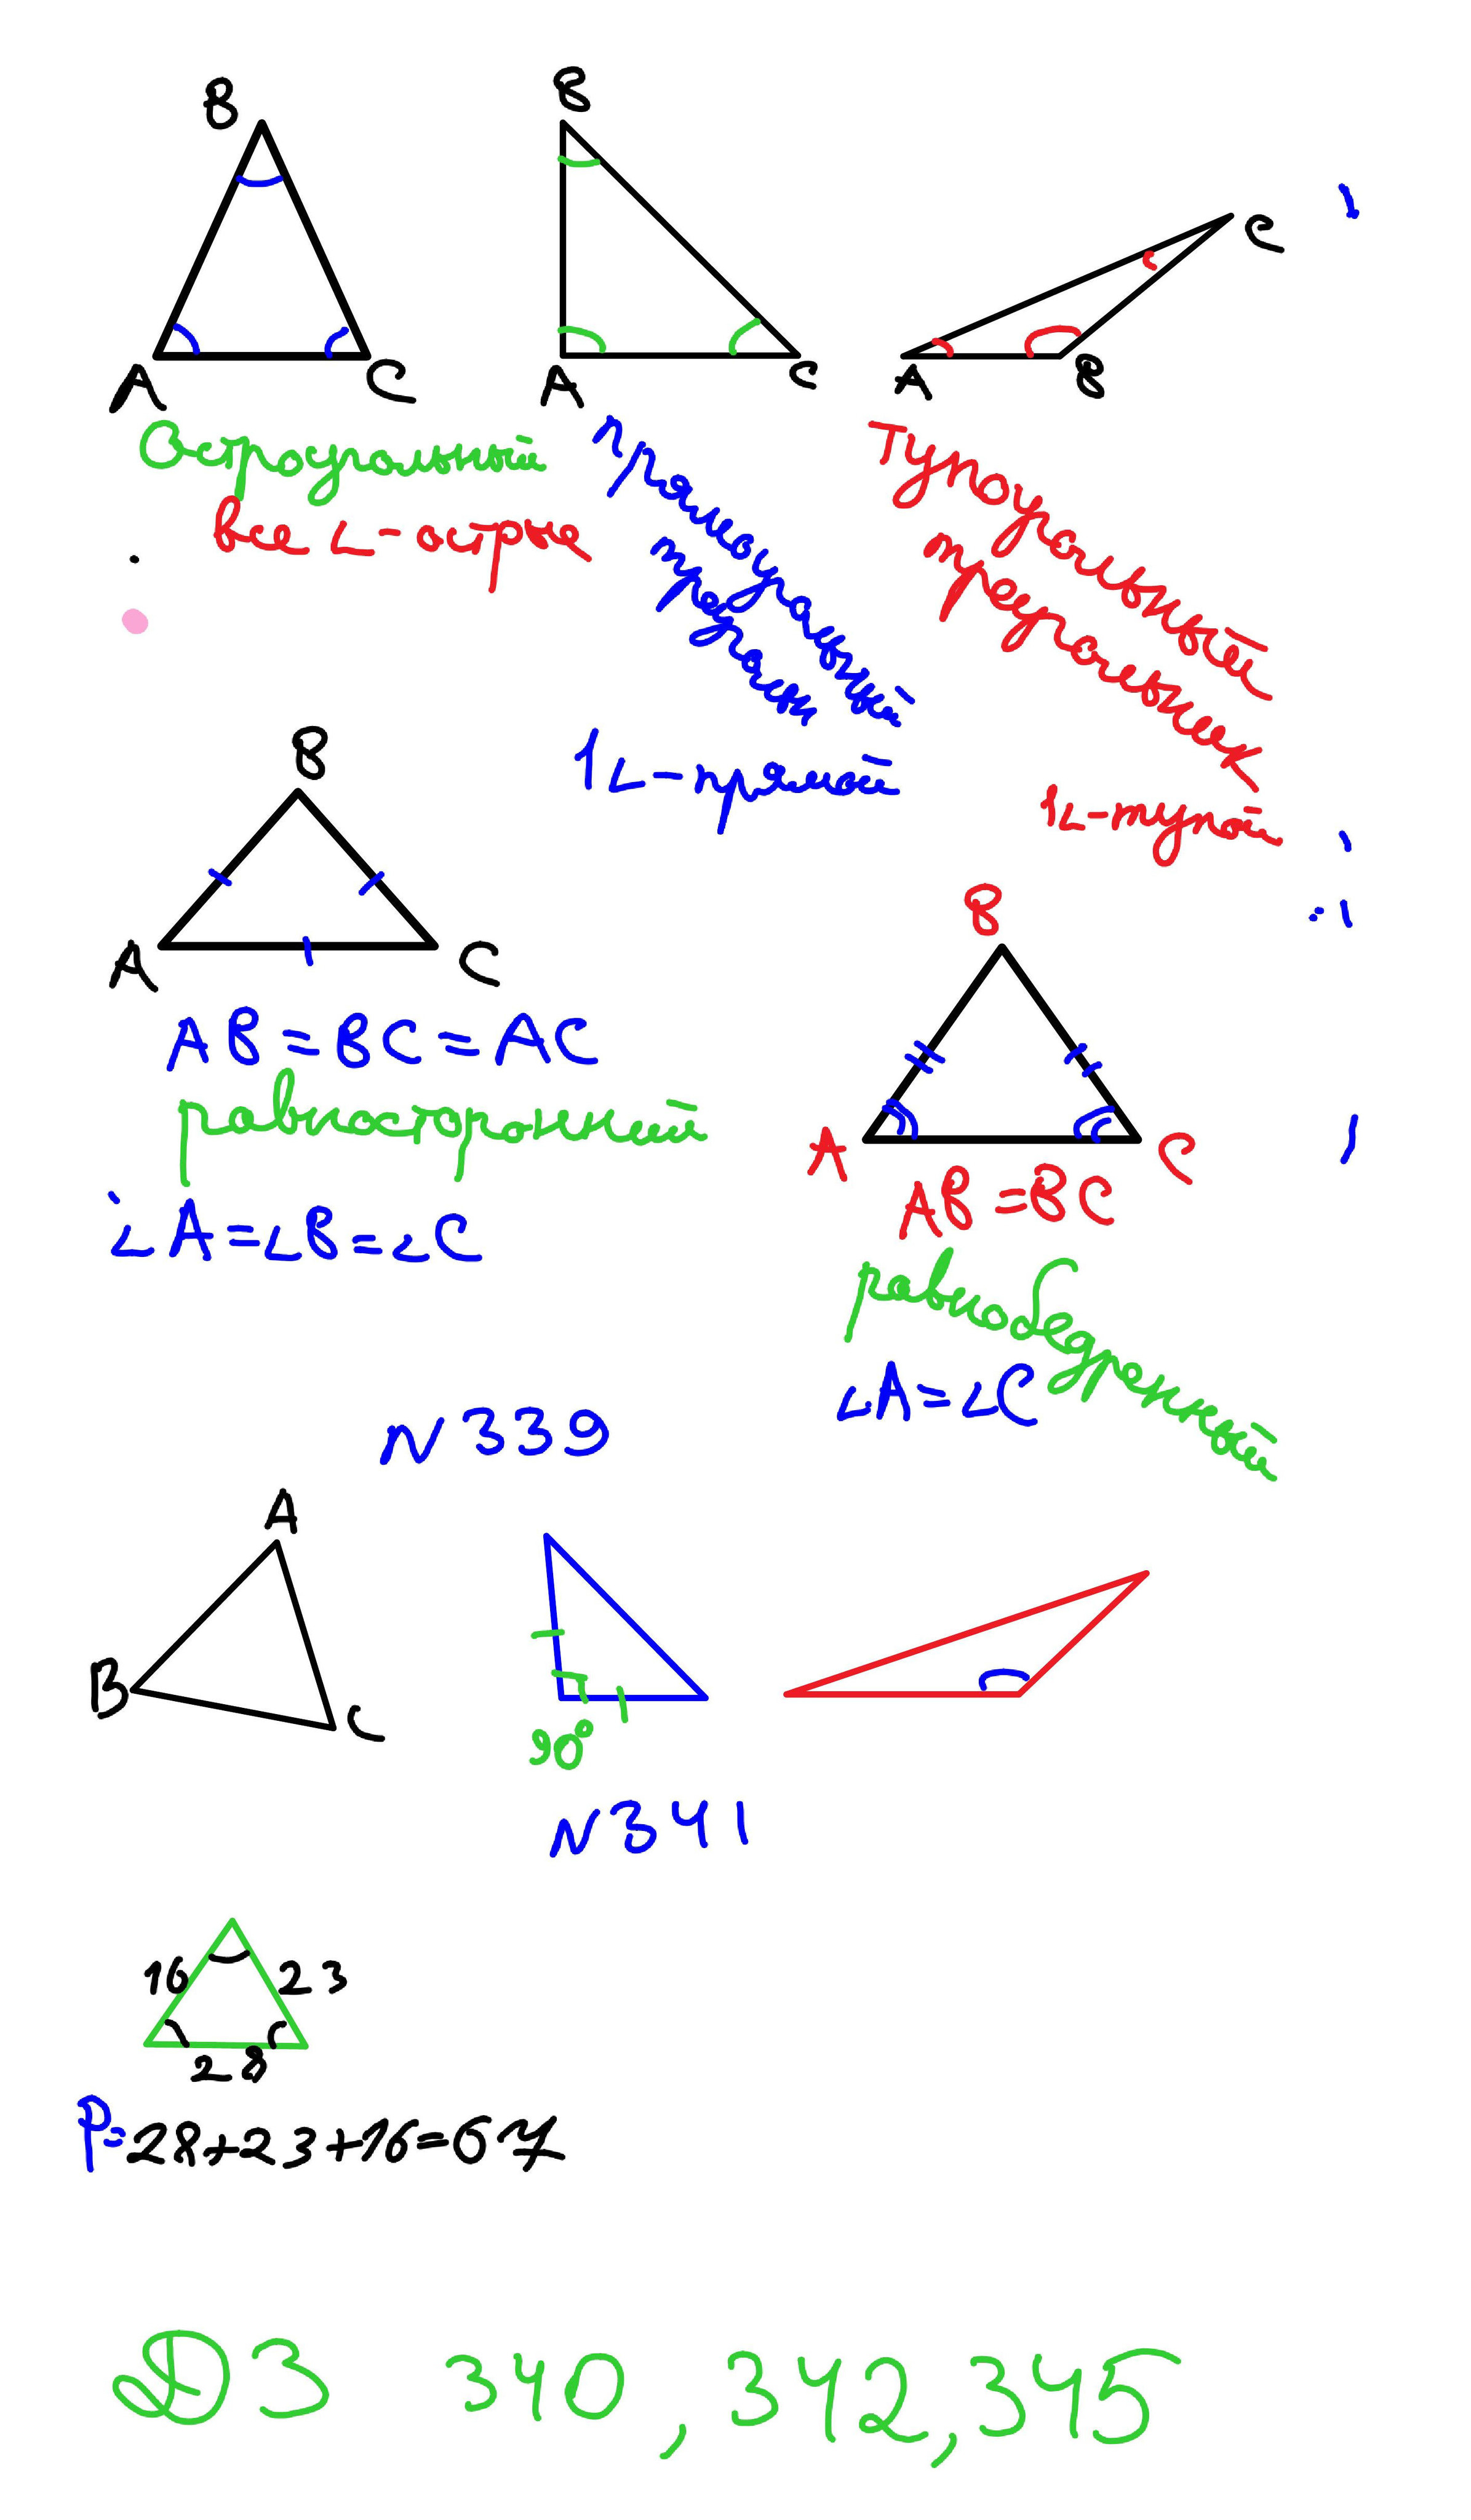 B
B
C
A
C
A
C
A
B
Остроугольный
все ∠-острые
Прямоугольный
треугольник
1∠-прямой
Тупоугольный
треугольник
1∠-тупой
B
A
C
AB=BC=AC
равносторонний
∠A=∠B=∠C
B
A
C
AB=BC
равнобедренный
∠A=∠C
N 330
A
B
C
90°
N 341
16
23
28
P=28+23+16=67
ДЗ 340, 342, 345